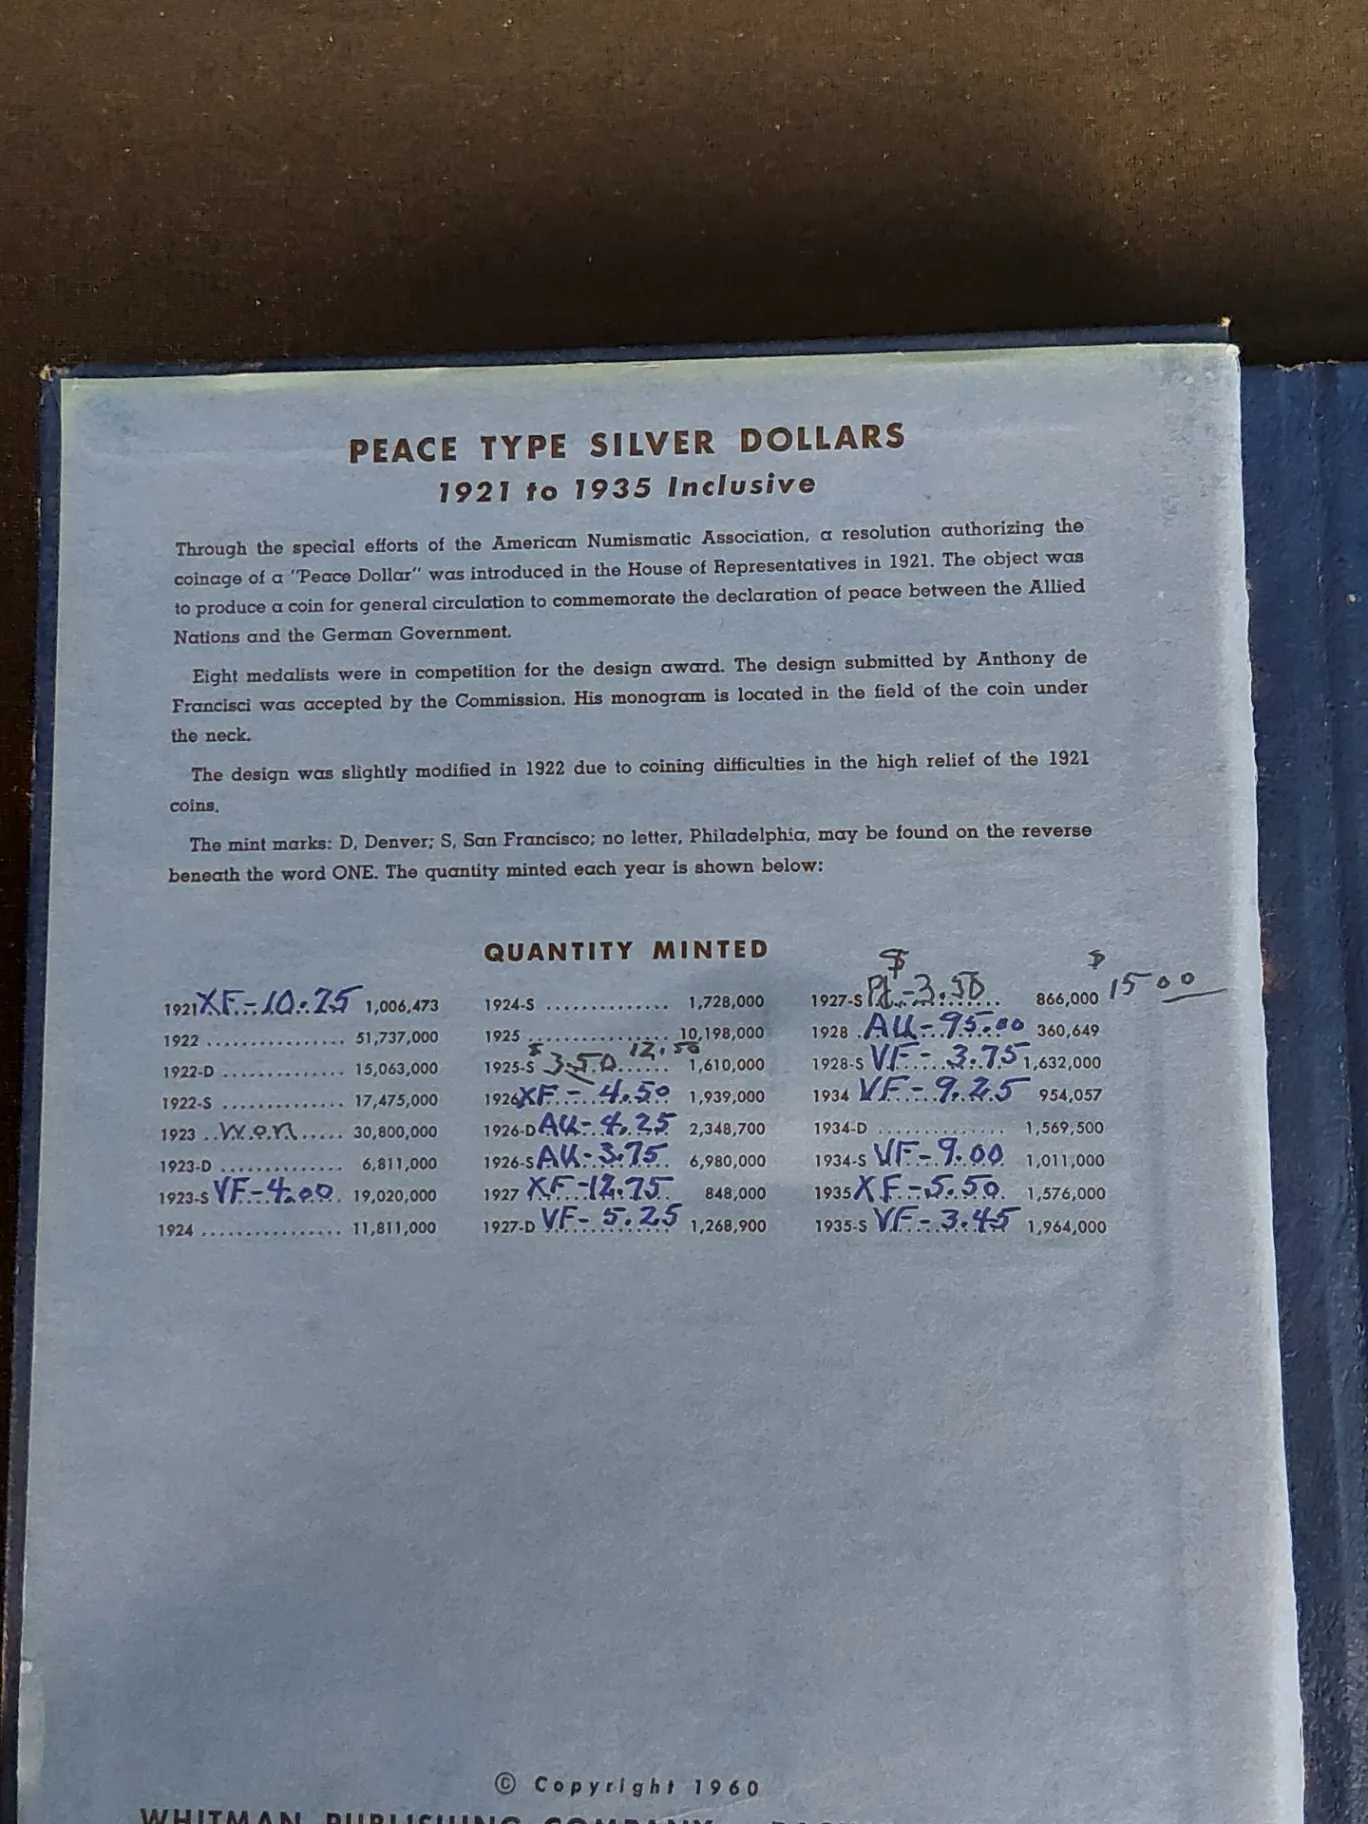 PEACE TYPE SILVER DOLLARS
1921 to 1935 Inclusive
Through the special efforts of the American Numismatic Association, a resolution authorizing the
coinage of a "Peace Dollar" was introduced in the House of Representatives in 1921. The object was
to produce a coin for general circulation to commemorate the declaration of peace between the Allied
Nations and the German Government.
Eight medalists were in competition for the design award. The design submitted by Anthony de
Francisci was accepted by the Commission. His monogram is located in the field of the coin under
the neck.
The design was slightly modified in 1922 due to coining difficulties in the high relief of the 1921
coins.
The mint marks: D, Denver; S, San Francisco; no letter, Philadelphia, may be found on the reverse
beneath the word ONE. The quantity minted each year is shown below:
QUANTITY MINTED
1921 XF-10.75 1,006,473
1922 ................ 51,737,000
1922-D .............. 15,063,000
1922-S .............. 17,475,000
1923 ..Worn..... 30,800,000
1923-D .............. 6,811,000
1923-S VF-4.00 19,020,000
1924 ................ 11,811,000
1924-S .............. 1,728,000
1925 ................ 10,198,000
1925-S $ 3.50 12.50 1,610,000
1926 XF-4.50 1,939,000
1926-D AU-4.25 2,348,700
1926-S AU-3.75 6,980,000
1927 XF-12.75 848,000
1927-D VF-5.25 1,268,900
1927-S $ 3.50 866,000 $ 15 00
1928 AU-95.00 360,649
1928-S VF-3.75 1,632,000
1934 VF-9.25 954,057
1934-D .............. 1,569,500
1934-S VF-9.00 1,011,000
1935 XF-5.50 1,576,000
1935-S VF-3.45 1,964,000
© Copyright 1960
WHITMAN PUBLISHING COMPANY